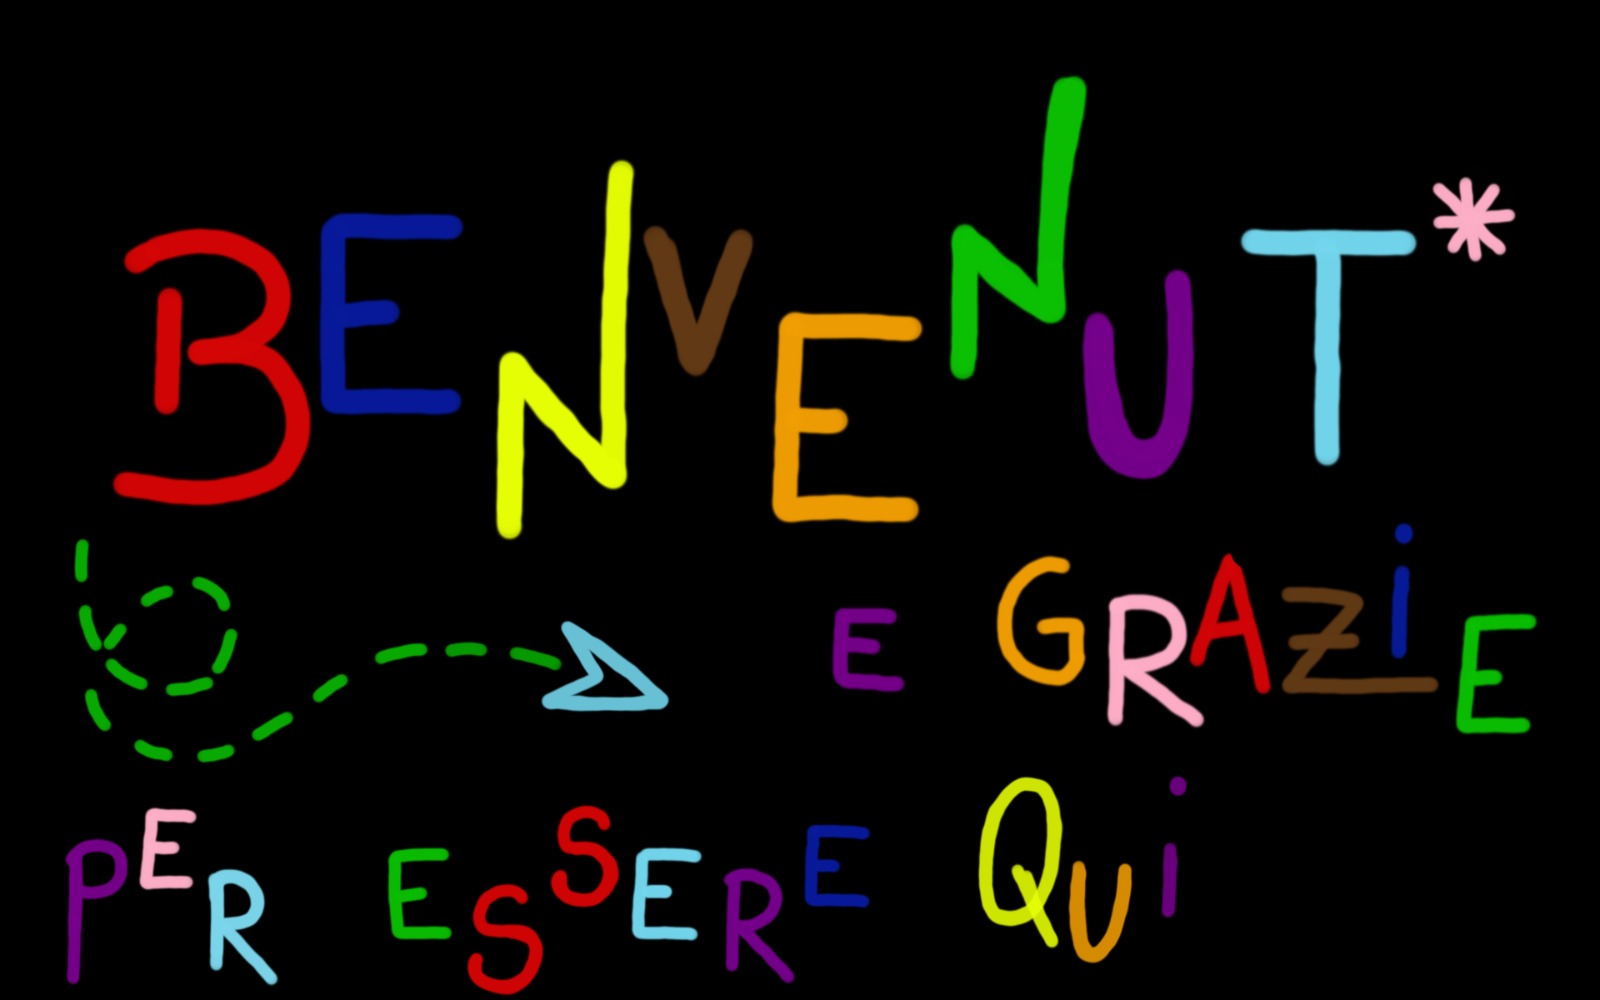 BENVENUT*
E GRAZiE
PER ESSERE QUi